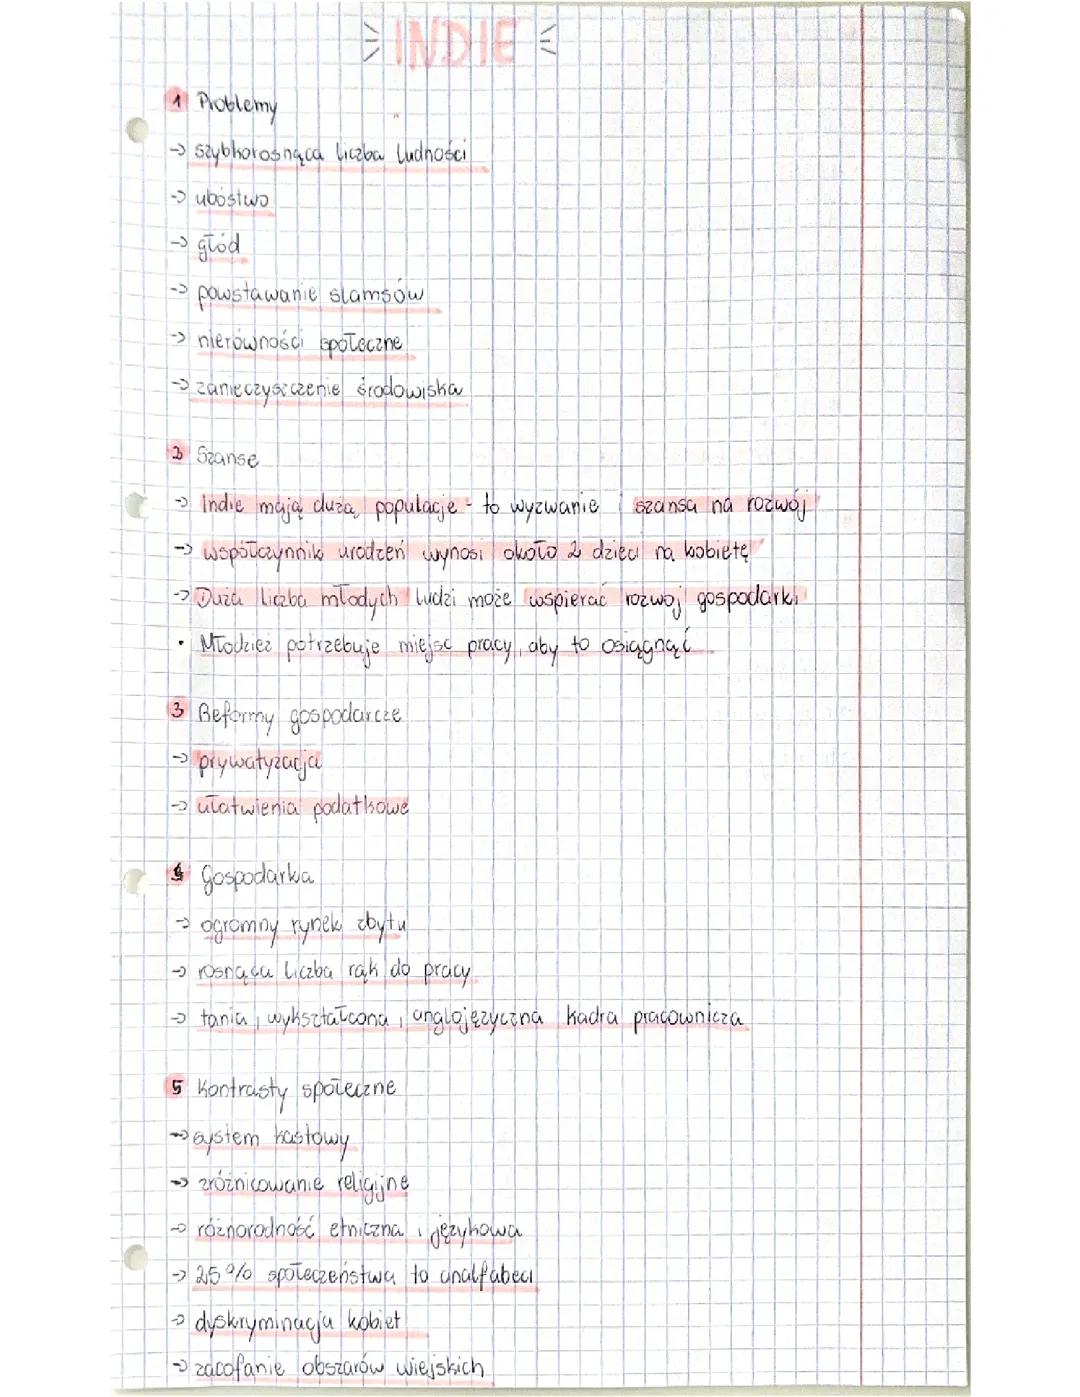 INDIE
1 Problemy
→ szybkorosnąca liczba ludności
→ ubóstwo
→ głód
→ powstawanie slamsów
→ nierówności społeczne
→ zanieczyszczenie środowiska
Szanse
→ Indie mają dużą populacje - to wyzwanie i szansa na rozwój
→ współczynnik urodzeń wynosi około 2 dzieci na kobietę
→ Duża liczba młodych ludzi może wspierać rozwój gospodarki
• Młodzież potrzebuje miejsc pracy, aby to osiągnąć
3 Reformy gospodarcze
→ prywatyzacja
→ ułatwienia podatkowe
4 Gospodarka
→ ogromny rynek zbytu
→ rosnąca liczba rąk do pracy
→ tania, wykształcona, anglojęzyczna kadra pracownicza
5 Kontrasty społeczne
→ system kastowy
→ zróżnicowanie religijne
→ różnorodność etniczna i językowa
→ 25% społeczeństwa to analfabeci
→ dyskryminacja kobiet
→ zacofanie obszarów wiejskich